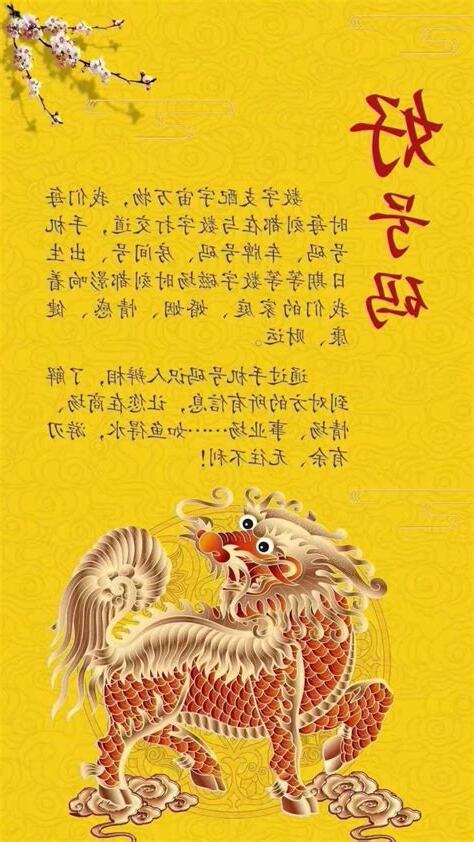 好号码
数字支配宇宙万物，我们每
时每刻都在与数字打交道，手机
号码、车牌号码、房间号、出生
日期等等数字磁场时刻都影响着
我们的家庭、婚姻、情感、健
康、财运。
通过手机号码识人辩相，了解
到对方的所有信息，让您在商场、
情场、事业场……如鱼得水，游刃
有余、无往不利！